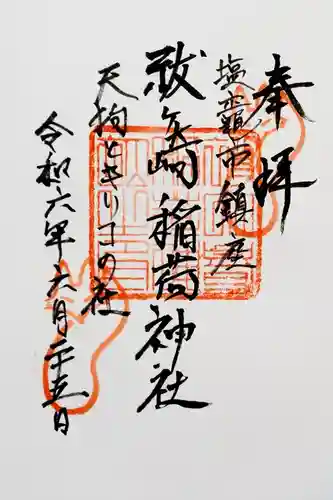 奉拝
塩竈市鎮座
祓ヶ崎稲荷神社
天狗ときりこの社
令和六年六月二十五日